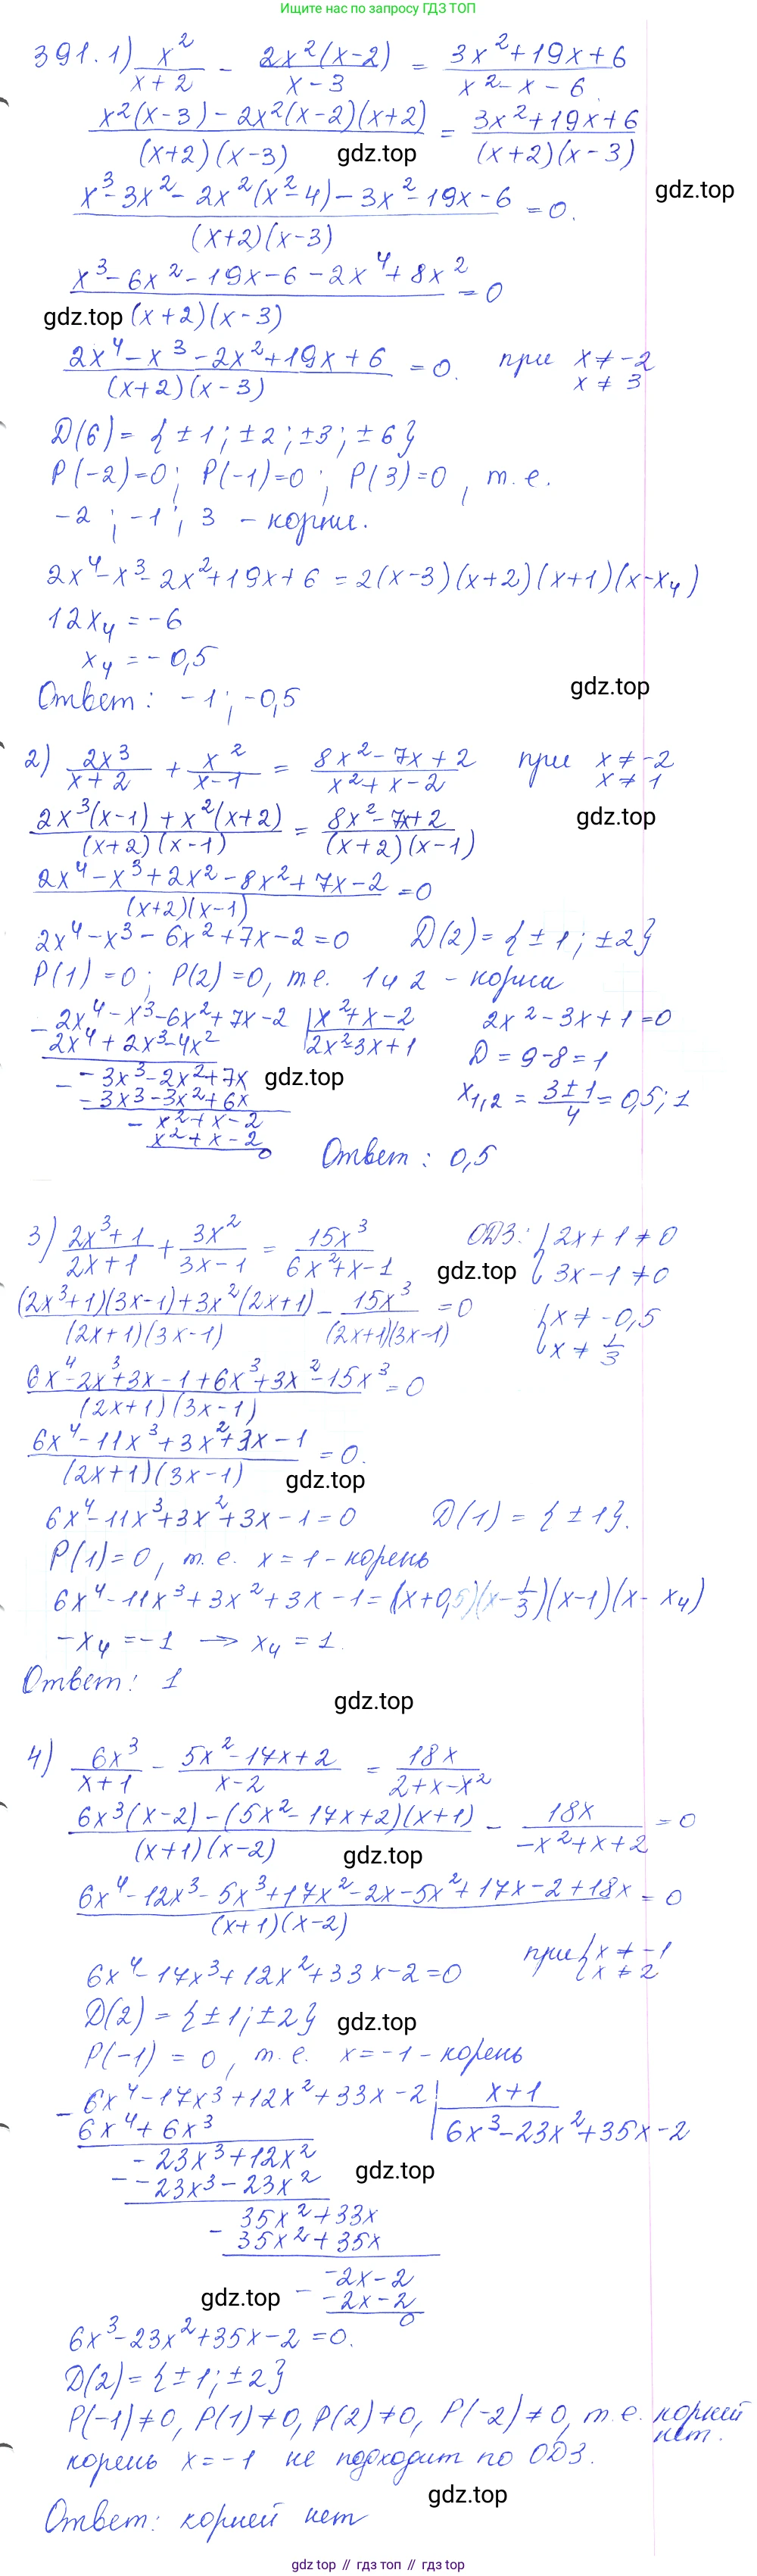 Ищите нас по запросу ГДЗ ТОП
391. 1) x²/(x+2) - 2x²(x-2)/(x-3) = (3x²+19x+6)/(x²-x-6)
(x²(x-3)-2x²(x-2)(x+2))/((x+2)(x-3)) = (3x²+19x+6)/((x+2)(x-3))
gdz.top
(x³-3x²-2x²(x²-4)-3x²-19x-6)/((x+2)(x-3)) = 0.
gdz.top
(x³-6x²-19x-6-2x⁴+8x²)/((x+2)(x-3)) = 0
gdz.top
(2x⁴-x³-2x²+19x+6)/((x+2)(x-3)) = 0. при x≠-2 x≠3
D(6)={±1;±2;±3;±6}
P(-2)=0; P(-1)=0; P(3)=0, т.е.
-2; -1; 3 - корни.
2x⁴-x³-2x²+19x+6=2(x-3)(x+2)(x+1)(x-x₄)
12x₄=-6
x₄=-0,5
gdz.top
Ответ: -1; -0,5
2) 2x³/(x+2) + x²/(x-1) = (8x²-7x+2)/(x²+x-2) при x≠-2 x≠1
gdz.top
(2x³(x-1)+x²(x+2))/((x+2)(x-1)) = (8x²-7x+2)/((x+2)(x-1))
(2x⁴-x³+2x²-8x²+7x-2)/((x+2)(x-1)) = 0
2x⁴-x³-6x²+7x-2=0 D(2)={±1;±2}
P(1)=0; P(2)=0, т.е. 1 и 2 - корни
-2x⁴-x³-6x²+7x-2 |x²+x-2 2x²-3x+1=0
2x⁴+2x³-4x² |2x²-3x+1 D=9-8=1
- -3x³-2x²+7x
gdz.top
-3x³-3x²+6x x₁,₂=(3±1)/4=0,5; 1
- x²+x-2
x²+x-2
0
Ответ: 0,5
3) (2x³+1)/(2x+1) + 3x²/(3x-1) = 15x³/(6x²+x-1) ОДЗ: {2x+1≠0 3x-1≠0
gdz.top
((2x³+1)(3x-1)+3x²(2x+1))/((2x+1)(3x-1)) - 15x³/((2x+1)(3x-1)) = 0 {x≠-0,5 x≠1/3
(6x⁴-2x³+3x-1+6x³+3x²-15x³)/((2x+1)(3x-1)) = 0
(6x⁴-11x³+3x²+3x-1)/((2x+1)(3x-1)) = 0.
gdz.top
6x⁴-11x³+3x²+3x-1=0 D(1)={±1}.
P(1)=0, т.е. x=1 - корень
6x⁴-11x³+3x²+3x-1=(x+0,5)(x-1/3)(x-1)(x-x₄)
-x₄=-1 → x₄=1.
Ответ: 1
gdz.top
4) 6x³/(x+1) - (5x²-17x+2)/(x-2) = 18x/(2+x-x²)
(6x³(x-2)-(5x²-17x+2)(x+1))/((x+1)(x-2)) - 18x/(-x²+x+2) = 0
gdz.top
(6x⁴-12x³-5x³+17x²-2x-5x²+17x-2+18x)/((x+1)(x-2)) = 0
6x⁴-17x³+12x²+33x-2=0 при {x≠-1 x≠2
D(2)={±1;±2}
gdz.top
P(-1)=0, т.е. x=-1 - корень
-6x⁴-17x³+12x²+33x-2 |x+1
6x⁴+6x³ |6x³-23x²+35x-2
-23x³+12x²
- -23x³-23x²
gdz.top
35x²+33x
- 35x²+35x
-2x-2
gdz.top
- -2x-2
0
6x³-23x²+35x-2=0.
D(2)={±1;±2}
P(-1)≠0, P(1)≠0, P(2)≠0, P(-2)≠0, т.е. корней нет.
корень x=-1 не подходит по ОДЗ.
gdz.top
Ответ: корней нет
gdz top // гдз топ // гдз top